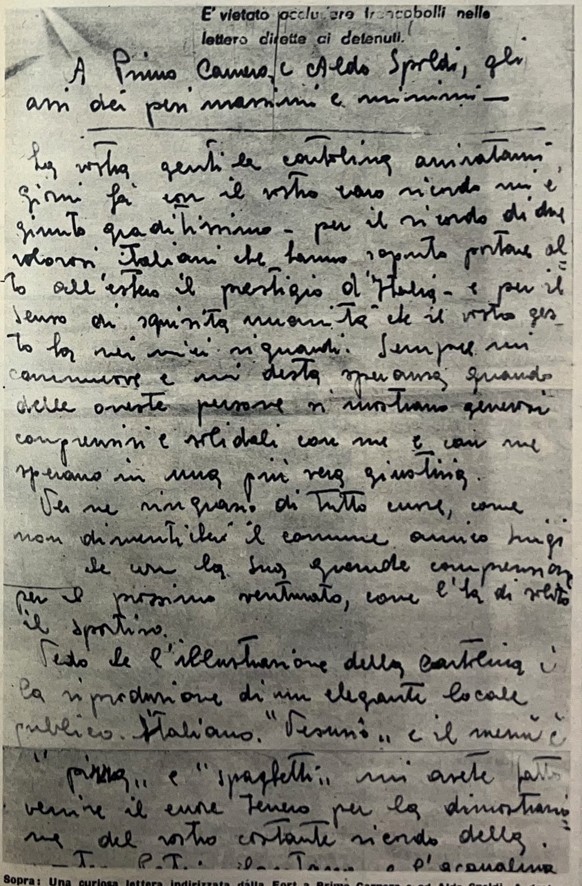 E' vietato accludere francobolli nelle
lettere dirette ai detenuti.
A Primo Carnera, e Aldo Spoldi, gli
assi dei pesi massimi e minimi —
La vostra gentile cartolina
giorni fà con il vostro caro ricordo mi è
giunto graditissimo - per il ricordo di due
valorosi italiani che hanno saputo portare al
to all'estero il prestigio d'Italia - e per il
senso di squisita umanità che il vostro ges-
to ha nei miei riguardi. Sempre mi
commuove e mi desta speranza quando
delle oneste persone si mostrano generosi
comprensivi e solidali con me e con me
sperano in una più vera giustizia.
Ve ne ringrazio di tutto cuore, come
non dimenticherò il comune amico Luigi
che con la sua grande comprensione
per il prossimo sventurato, come l'ha di solito
il sportivo.
Vedo che l'illustrazione della cartolina è
la riproduzione di un elegante locale
pubblico. Italiano. "Vesuvio" e il menù è
"pizza" e "spaghetti" mi avete fatto
venire il cuore tenero per la dimostrazio
ne del vostro costante ricordo della
e l'acqualina
Sopra: Una curiosa lettera indirizzata dalla Fort a Primo Carnera e ad Aldo Spoldi